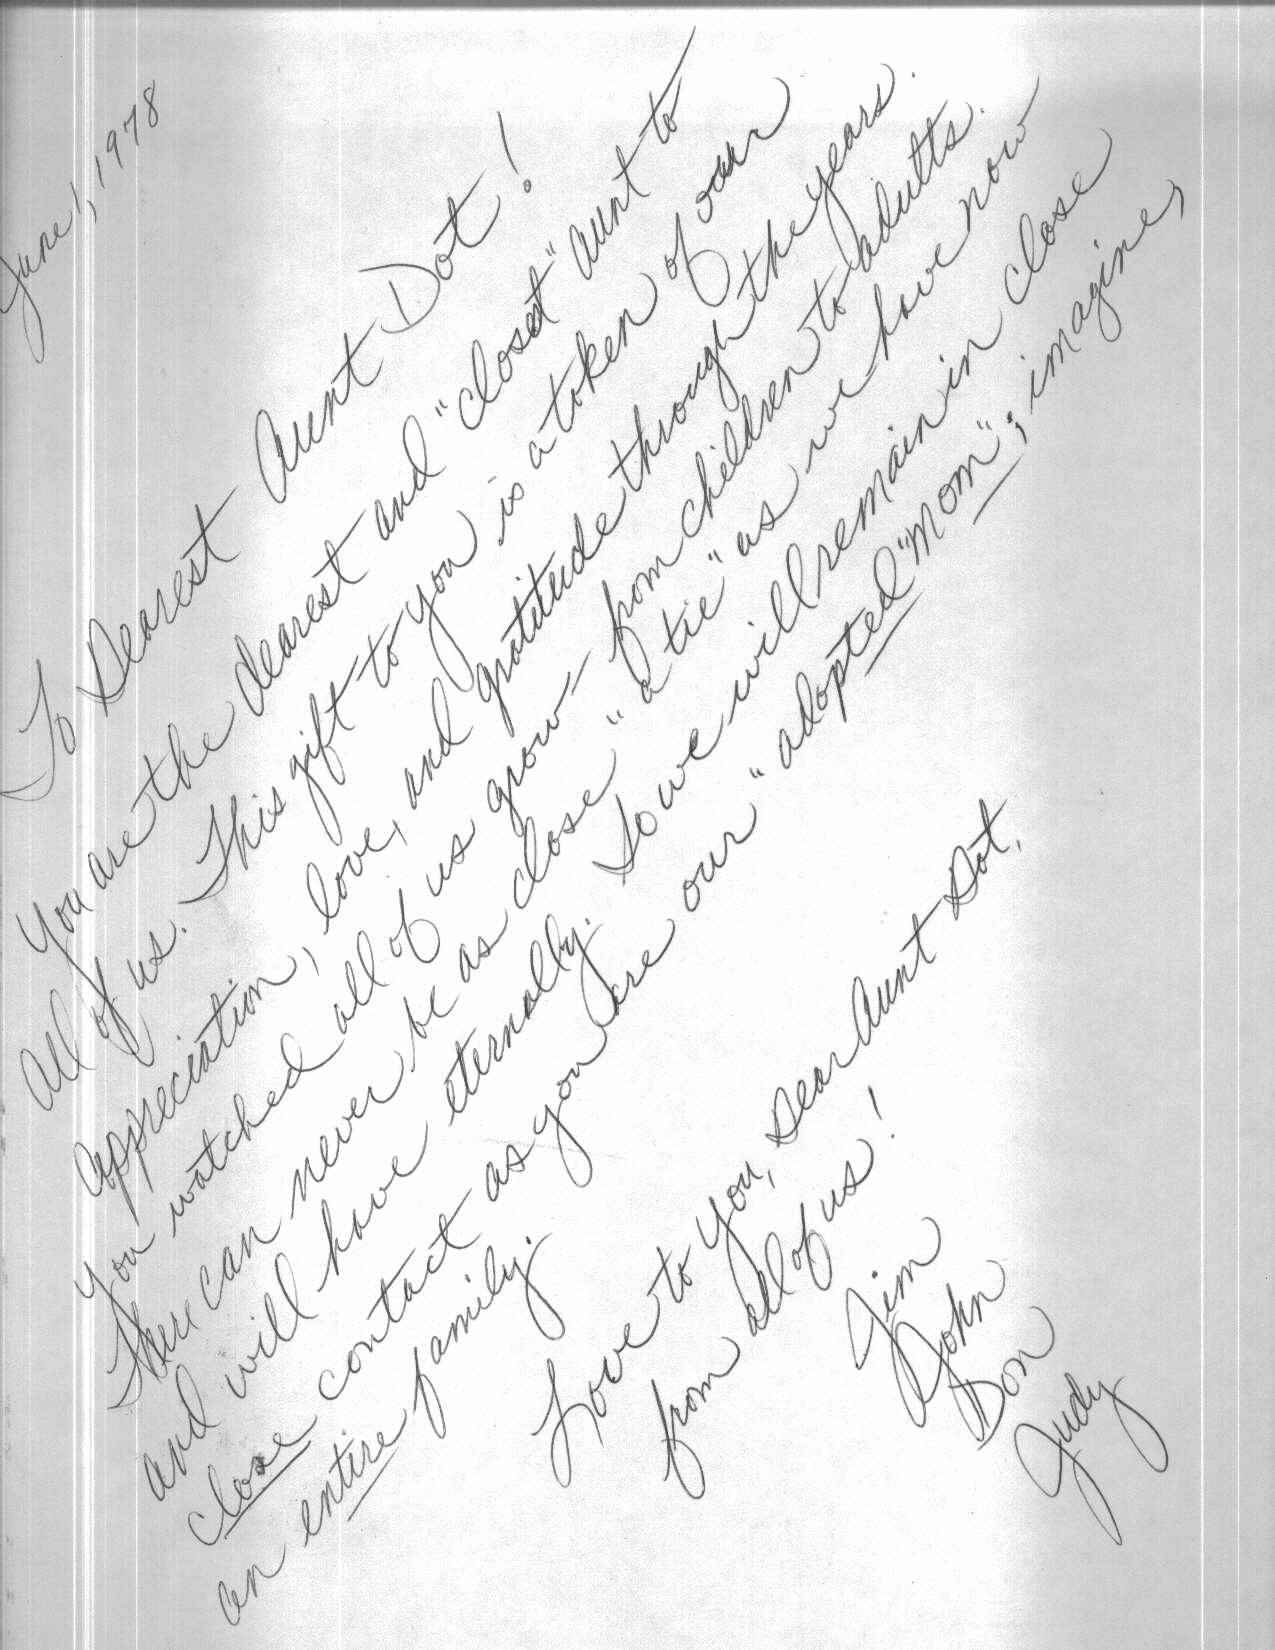 June 1, 1978
To Dearest Aunt Dot!
You are the dearest and "closest" aunt to
all of us. This gift to you is a token of our
appreciation, love, and gratitude through the years.
You watched all of us grow - from children to adults.
There can never be as close "a tie" as we have now
and will have eternally. So we will remain in close
close contact as you are our "adopted "Mom"; imagine,
an entire family.
Love to you, Dear Aunt Dot,
from all of us!
Jim
John
Don
Judy